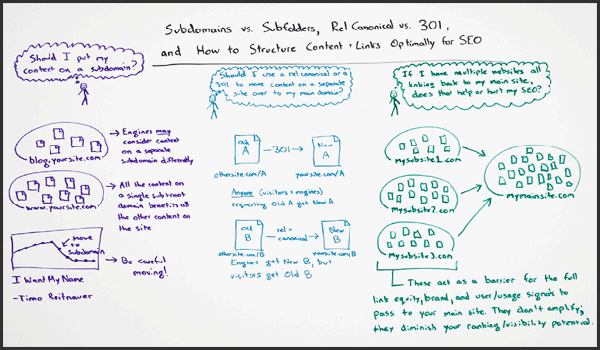 Subdomains vs. Subfolders, Rel Canonical vs. 301,
and How to Structure Content + Links Optimally for SEO
Should I put my
content on a subdomain?
blog.yoursite.com
Engines may
consider content
on a separate
subdomain differently
www.yoursite.com
All the content on
a single sub+root
domain benefits all
the other content on
the site
move to
subdomain
Be careful
moving!
I Want My Name
-Timo Reitnauer
Should I use a rel canonical or a
301 to move content on a separate
site over to my main domain?
Old
A
301
New
A
othersite.com/A
yoursite.com/A
Anyone (visitors + engines)
requesting Old A get New A
Old
B
rel=
canonical
New
B
othersite.com/B
yoursite.com/B
Engines get New B, but
visitors get Old B
If I have multiple websites all
linking back to my main site,
does that help or hurt my SEO?
mysubsite1.com
mysubsite2.com
mysubsite3.com
mymainsite.com
These act as a barrier for the full
link equity, brand, and user/usage signals to
pass to your main site. They don't amplify;
they diminish your ranking/visibility potential.